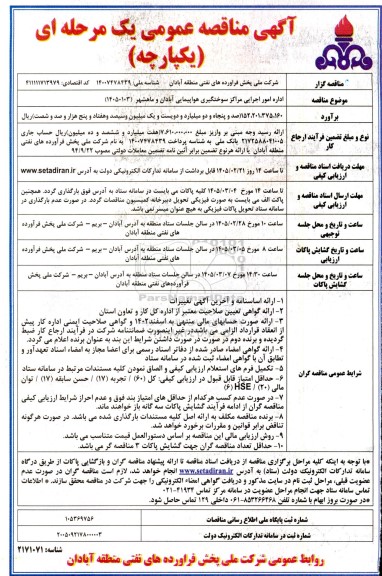 آگهی مناقصه عمومی یک مرحله ای
(یکپارچه)
مناقصه گزار
شرکت ملی پخش فرآورده های نفتی منطقه آبادان شناسه ملی: ۱۴۰۰۷۴۷۸۴۳۹ کد اقتصادی: ۴۱۱۱۱۷۱۳۹۷۹
موضوع مناقصه
اداره امور اجرایی مراکز سوختگیری هواپیمایی آبادان و ماهشهر (۱۴۰۵-۱۰۰۳)
برآورد
۱۵۲,۲۰۱,۳۷۵,۱۶۰(صد و پنجاه و دو میلیارد و دویست و یک میلیون وسیصد وهفتاد و پنج هزار و صد و شصت)ریال
نوع و مبلغ تضمین فرآیند ارجاع کار
ارائه رسید وجه مبنی بر واریز مبلغ ۷,۶۱۰,۰۰۰,۰۰۰(هفت میلیارد و ششصد و ده میلیون)ریال حساب جاری
بانک ملی به شناسه پرداخت به نام شرکت ملی پخش فرآورده های نفتی
منطقه آبادان یا ارائه هرنوع تضمین برابر آئین نامه تضمین معاملات دولتی مصوب ۹۴/۹/۲۲
مهلت دریافت اسناد مناقصه و ارزیابی کیفی
تا ساعت ۱۴ روز ۱۴۰۵/۰۲/۲۱ قابل برداشت از سامانه تدارکات الکترونیکی دولت به آدرس www.setadiran.ir
مهلت ارسال اسناد مناقصه و ارزیابی کیفی
تا ساعت ۱۴ مورخ ۱۴۰۵/۰۳/۰۴ کلیه پاکات می بایست در سامانه ستاد به آدرس فوق بارگذاری گردد. همچنین
پاکت الف می بایست به صورت فیزیکی تحویل دبیرخانه کمیسیون مناقصات گردد. در صورت عدم بارگذاری در
سامانه ستاد تحویل پاکات فیزیکی به هیچ عنوان میسر نمی باشد.
ساعت و تاریخ و محل جلسه توجیهی
ساعت ۱۰ مورخ ۱۴۰۵/۰۲/۲۸ در سالن جلسات ستاد منطقه به آدرس آبادان – بریم – شرکت ملی پخش فرآورده
های نفتی منطقه آبادان
ساعت و تاریخ گشایش پاکات ارزیابی
ساعت ۸ مورخ ۱۴۰۵/۰۳/۰۵ در سالن جلسات ستاد منطقه به آدرس آبادان – بریم – شرکت ملی پخش فرآورده
های نفتی منطقه آبادان
ساعت و تاریخ و محل جلسه گشایش پاکات
ساعت ۱۴:۳۰ مورخ ۱۴۰۵/۰۳/۰۷ در سالن جلسات ستاد منطقه به آدرس آبادان – بریم – شرکت ملی پخش
فرآورده‌های نفتی منطقه آبادان
شرایط عمومی مناقصه گران
۱- ارائه اساسنامه و آخرین آگهی تغییرات
۲- ارائه گواهی تعیین صلاحیت معتبر از اداره کل کار و تعاون استان
۳- ارائه صورت حسابهای مالی منتهی به اسفند۱۴۰۲ و گواهی صلاحیت ایمنی اداره کار پیش
از انعقاد قرارداد الزامی می باشد،در غیر اینصورت ضمانتنامه شرکت در فرآیند ارجاع کار ضبط
گردیده و برنده دوم در صورت در صورت داشتن شرایط این بند به عنوان برنده اعلام می گردد.
۴- ارائه گواهی امضاء صادر شده از دفاتر اسناد رسمی برای امضا مجاز به امضاء اسناد تعهدآور و
تطابق آن با گواهی امضاء ثبت شده در سامانه ستاد
۵- تکمیل فرم های استعلام ارزیابی کیفی و الصاق نمودن کلیه مستندات مرتبط در سامانه ستاد
۶- حداقل امتیاز قابل قبول در ارزیابی کیفی: کل (۶۰) / تجربه (۱۷) / حسن سابقه (۱۷) / توان
مالی (۲۰) / HSE (۶)
۷- در صورت عدم کسب هرکدام از حداقل های امتیاز بند فوق و عدم احراز شرایط ارزیابی کیفی
مناقصه گران از ادامه فرآیند گشایش پاکات سه گانه باز خواهند ماند.
۸- برنده مناقصه مکلف به ارائه اصل کلیه مستندات بارگذاری شده می باشد. در صورت هرگونه
تناقض برابر قوانین و مقررات برخورد خواهد شد.
۹- روش ارزیابی مالی این مناقصه بر اساس دستورالعمل قیمت متناسب می باشد.
۱۰- حداقل تعداد مناقصه گران جهت گشایش پاکات ۳ مناقصه گر می باشد.
با توجه به اینکه کلیه مراحل برگزاری مناقصه از دریافت اسناد مناقصه تا ارائه پیشنهاد مناقصه گران و بازگشایی پاکات از طریق درگاه
سامانه تدارکات الکترونیک دولت (ستاد) به آدرس www.setadiran.ir انجام خواهد شد، لازم است مناقصه گران در صورت عدم
عضویت قبلی، مراحل ثبت نام در سایت مذکور و دریافت گواهی امضاء الکترونیکی را جهت شرکت در مناقصه محقق سازند. * اطلاعات
تماس سامانه ستاد جهت انجام مراحل عضویت در سامانه مرکز تماس ۴۱۹۳۴-۰۲۱
*در صورت بروز ابهام با شماره تلفن ۸۵۳۲۶۶۴۸-۰۶۱ داخلی ۱۲۹ تماس حاصل شود.
شماره ثبت پایگاه ملی اطلاع رسانی مناقصات
۱۰۵۳۶۹۷۵۶
شماره ثبت در سامانه تدارکات الکترونیک دولت
۲۰۰۵۰۹۲۱۷۸۰۰۰۰۰۳
شناسه: ۲۱۷۱۰۷۱
روابط عمومی شرکت ملی پخش فراورده های نفتی منطقه آبادان